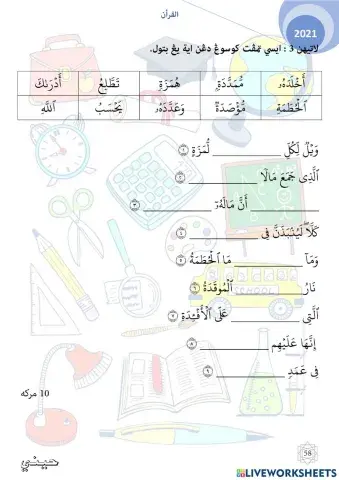 القرأن
2021
لاتيهن 3 : ايسي تمڤت كوسوڠ دڠن اية يڠ بتول.
أَخْلَدَهُۥ مُّمَدَّدَةٍۭ هُمَزَةٍ تَطَّلِعُ أَدْرَىٰكَ
ٱلْحُطَمَةِ مُّؤْصَدَةٌ وَعَدَّدَهُۥ يَحْسَبُ ٱللَّهِ
وَيْلٌ لِّكُلِّ ____________ لُّمَزَةٍ ١
ٱلَّذِى جَمَعَ مَالًا ____________ ٢
____________ أَنَّ مَالَهُۥٓ ____________ ٣
كَلَّا لَيُنۢبَذَنَّ فِى ____________ ٤
وَمَآ ____________ مَا ٱلْحُطَمَةُ ٥
نَارُ ____________ ٱلْمُوقَدَةُ ٦
ٱلَّتِى ____________ عَلَى ٱلْأَفْـِٔدَةِ ٧
إِنَّهَا عَلَيْهِم ____________ ٨
فِى عَمَدٍ ____________ ٩
10 مركه
SCHOOL
58
LIVEWORKSHEETS